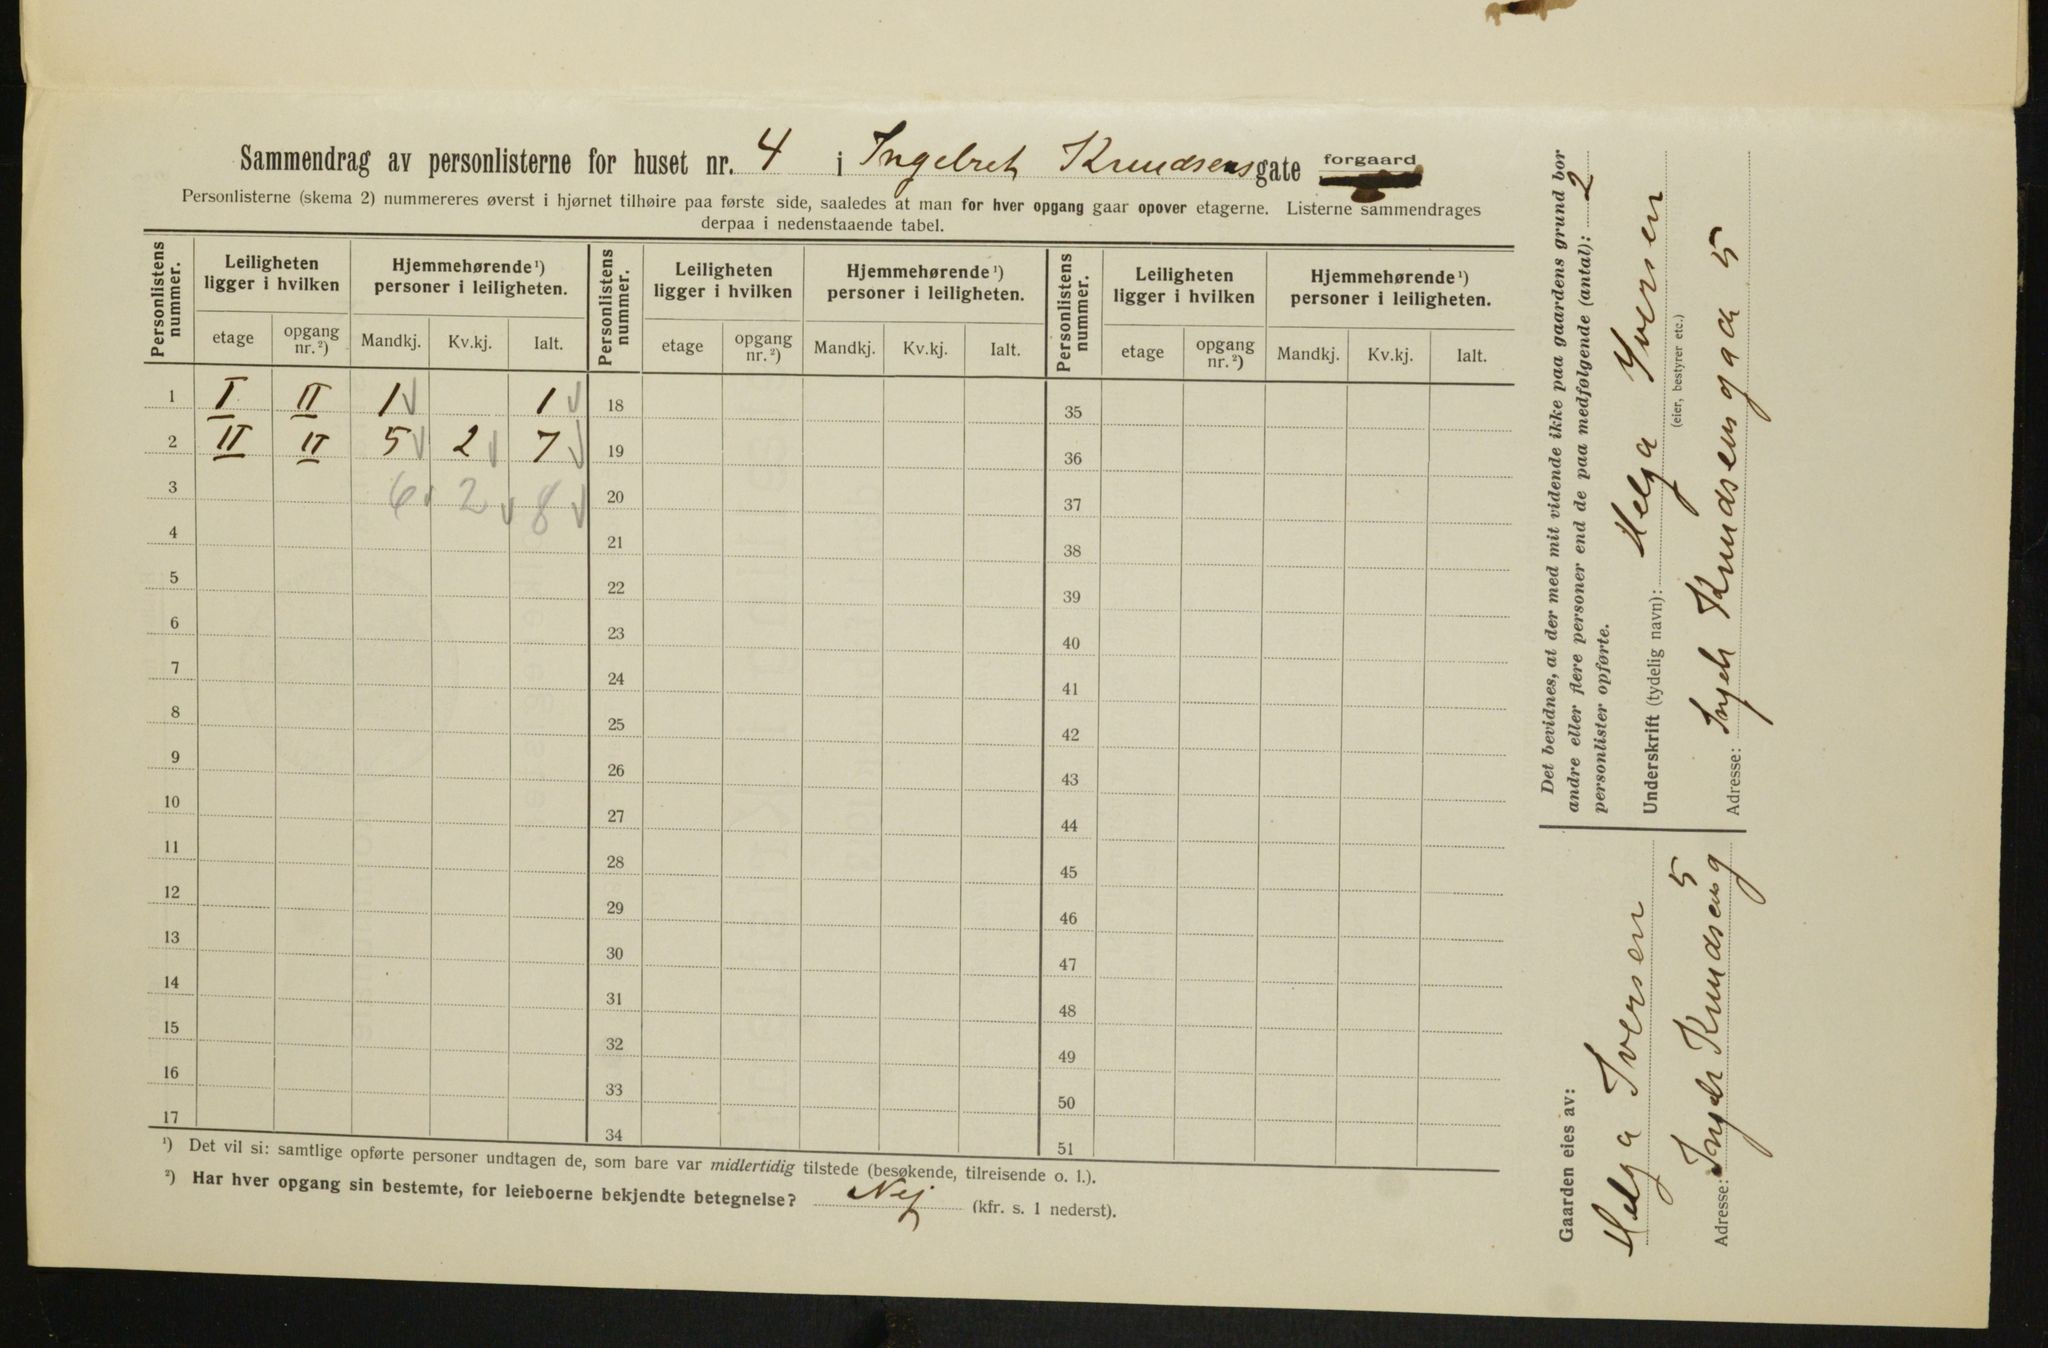 Sammendrag av personlisterne for huset nr. 4 i Ingebret Knudsens gate forgaard
Personlisterne (skema 2) nummereres øverst i hjørnet tilhøire paa første side, saaledes at man for hver opgang gaar opover etagerne. Listerne sammendrages
derpaa i nedenstaaende tabel.
Personlistens nummer. Leiligheten ligger i hvilken Hjemmehørende ¹) personer i leiligheten. Personlistens nummer. Leiligheten ligger i hvilken Hjemmehørende ¹) personer i leiligheten. Personlistens nummer. Leiligheten ligger i hvilken Hjemmehørende ¹) personer i leiligheten.
etage opgang nr. ²) Mandkj. Kv.kj. Ialt. etage opgang nr. ²) Mandkj. Kv.kj. Ialt. etage opgang nr. ²) Mandkj. Kv.kj. Ialt.
1 I II 1 1 18 35
2 II II 5 2 7 19 36
3 6 2 8 20 37
4 21 38
5 22 39
6 23 40
7 24 41
8 25 42
9 26 43
10 27 44
11 28 45
12 29 46
13 30 47
14 31 48
15 32 49
16 33 50
17 34 51
¹) Det vil si: samtlige opførte personer undtagen de, som bare var midlertidig tilstede (besøkende, tilreisende o. l.).
²) Har hver opgang sin bestemte, for leieboerne bekjendte betegnelse? Nej (kfr. s. 1 nederst).
Det bevidnes, at der med mit vidende ikke paa gaardens grund bor
andre eller flere personer end de paa medfølgende (antal): 2
personlister opførte.
Underskrift (tydelig navn): Helga Iversen
(eier, bestyrer etc.)
Adresse: Ingeb Knudsensgade 5
Gaarden eies av:
Helga Iversen
Adresse: Ingeb Knudsensg 5